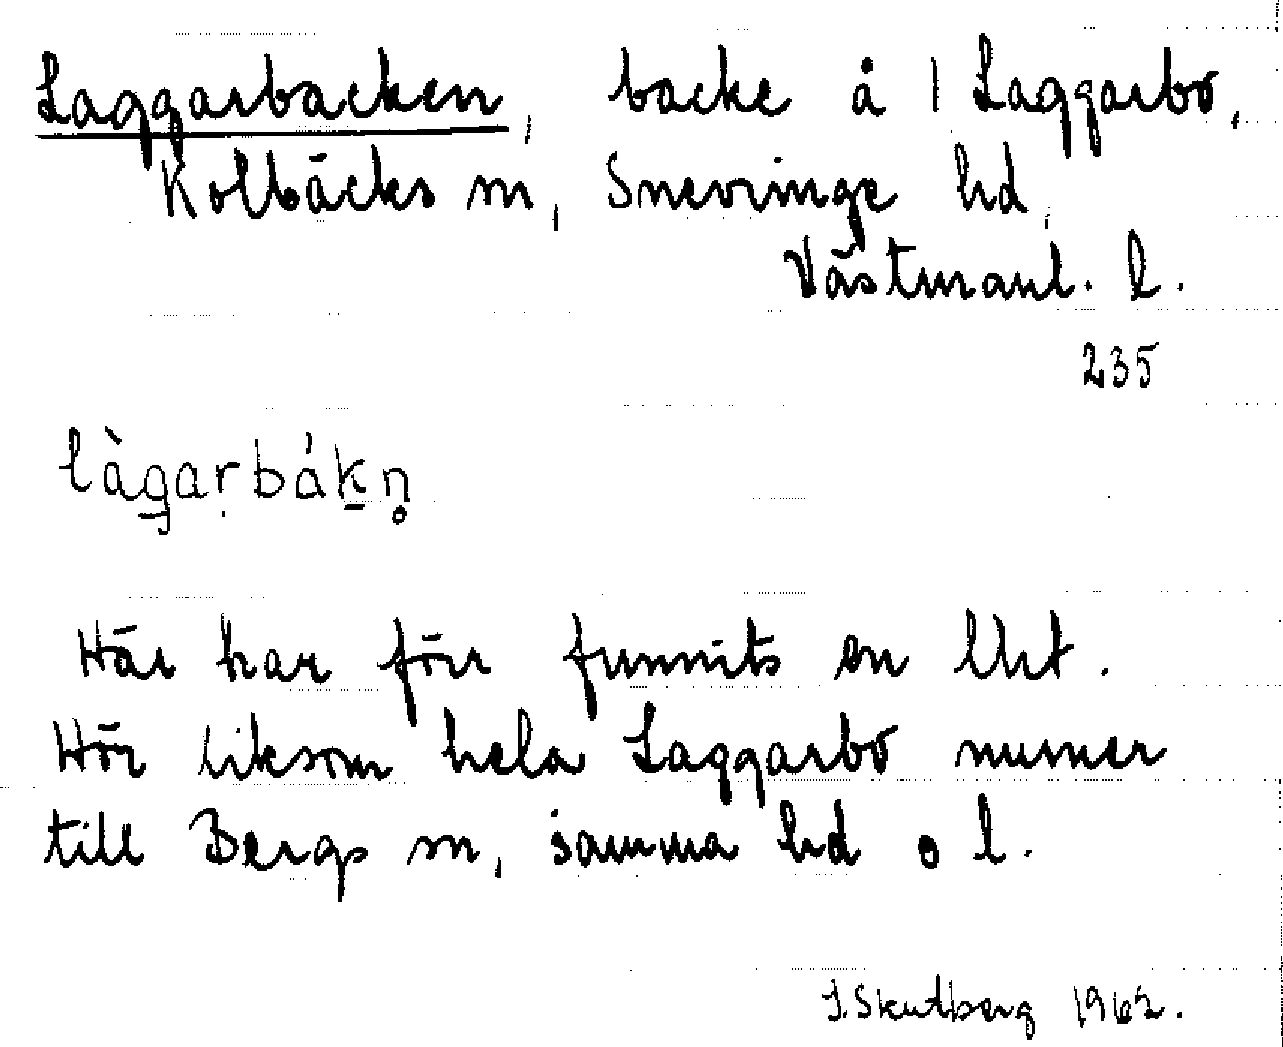 Laggarbacken, backe å 1 Laggarbo,
Kolbäcks sn, Snevringe hd,
Västmanl. l.
235
làg̱aṛbák̠n̥
Här har förr funnits en lht.
Hör liksom hela Laggarbo numer
till Bergs sn, samma hd o l.
J. Skutberg 1962.